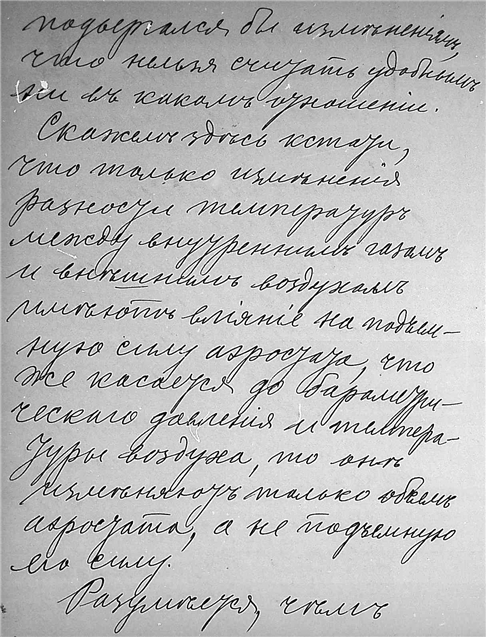 подвергался бы измѣненіямъ,
что нельзя считать удобнымъ
ни въ какомъ отношеніи.
Скажемъ здѣсь кстати,
что только измѣненія
разности температуръ
между внутреннимъ газомъ
и внѣшнимъ воздухомъ
имѣютъ вліяніе на подъем-
ную силу аэростата, что
же касается до барометри-
ческаго давленія и темпера-
туры воздуха, то онѣ
измѣняютъ только объемъ
аэростата, а не подъемную
его силу.
Разумѣется, чѣмъ